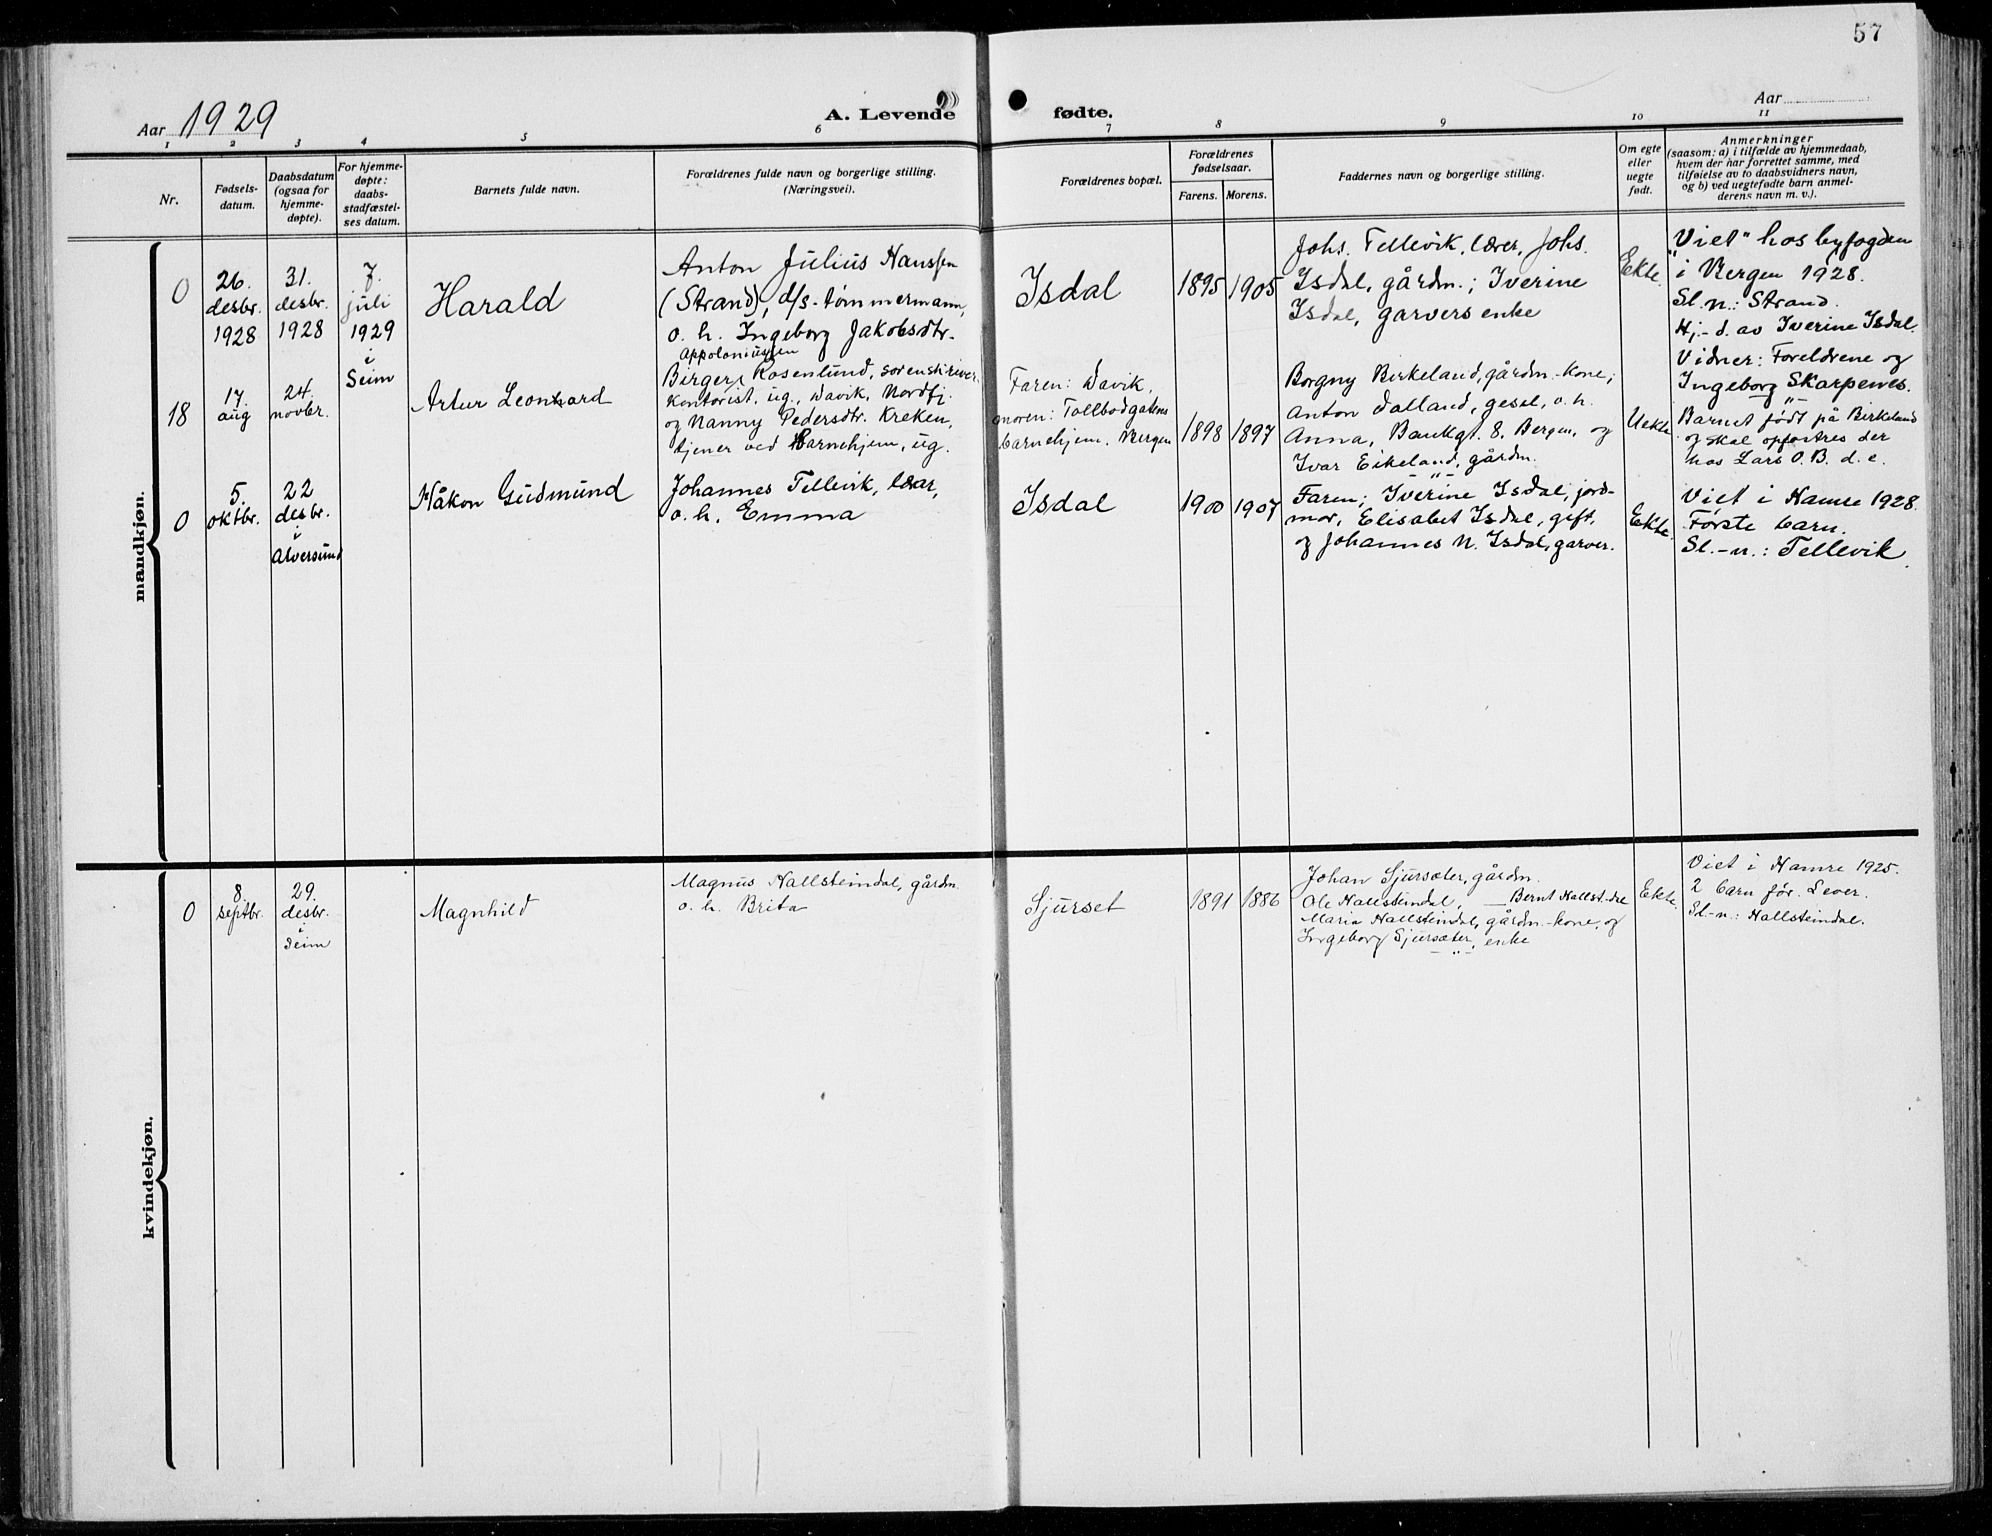 57
Aar 1929
A. Levende fødte.
Aar
1 2 3 4 5 6 7 8 9 10 11
Nr.
Fødsels-
datum.
Daabsdatum
(ogsaa for
hjemme-
døpte).
For hjemme-
døpte:
daabs-
stadfæstel-
ses datum.
Barnets fulde navn.
Forældrenes fulde navn og borgerlige stilling.
(Næringsvei).
Forældrenes bopæl.
Forældrenes
fødselsaar.
Farens. Morens.
Faddernes navn og borgerlige stilling.
Om egte
eller
uegte
født.
Anmerkninger
(saasom: a) i tilfælde av hjemmedaab,
hvem der har forrettet samme, med
tilføielse av to daabsvidners navn,
og b) ved uegtefødte barn anmel-
derens navn m. v.).
mandkjøn.
0
26.
desbr.
1928
31.
desbr.
1928
7.
juli
1929
i
Seim
Harald
Anton Julius Hanssen
(Strand), d/s-tømmermann,
o. h. Ingeborg Jakobsdtr.
Isdal
1895 1905
Johs. Tellevik, lærer, Johs.
Isdal, gårdm.; Iverine
Isdal, garvers enke
Ekte.
"Viet" hos byfogden
i Bergen 1928.
Sl.n.: Strand.
Hj.-d. av Iverine Isdal.
Vidner: Foreldrene og
Ingeborg Skarpenes.
18
17.
aug
24.
novbr.
Artur Leonhard
Appoloniussen
Birger Rosenlund, sorenskriver-
kontorist, ug., Davik, Nordfj.
og Nanny Pedersdtr. Kreken,
tjener ved Barnehjem, ug.
Faren: Davik.
moren: Tollbodgatens
barnehjem. Bergen
1898 1897
Borgny Birkeland, gårdm.-kone;
Anton Dalland, gesel, o. h.
Anna, Bankgt. 8. Bergen, og
Ivar Eikeland, gårdm.
Uekte
Barnet født på Birkeland
og skal opfostres der
hos Lars O. B. d. e.
0
5.
oktbr.
22
desbr.
i
Alversund
Håkon Gudmund
Johannes Tellevik, lærar,
o. h. Emma
Isdal
1900 1907
Faren; Iverine Isdal, jord-
mor, Elisabet Isdal, gift,
og Johannes N. Isdal, garver.
Ekte.
Viet i Hamre 1928.
Første barn.
Sl.-n.: Tellevik.
kvindekjøn.
0
8.
septbr.
29.
desbr.
i
Seim
Magnhild
Magnus Hallsteindal, gårdm.
o. h. Brita
Sjurset
1891 1886
Johan Sjursæter, gårdm.
Ole Hallsteindal, — Bernt Hallst.dal
Maria Hallsteindal, gårdm.-kone, og
Ingeborg Sjursæter, enke
—"—
Ekte.
Viet i Hamre 1925.
2 barn før. Lever.
Sl.-n.: Hallsteindal.